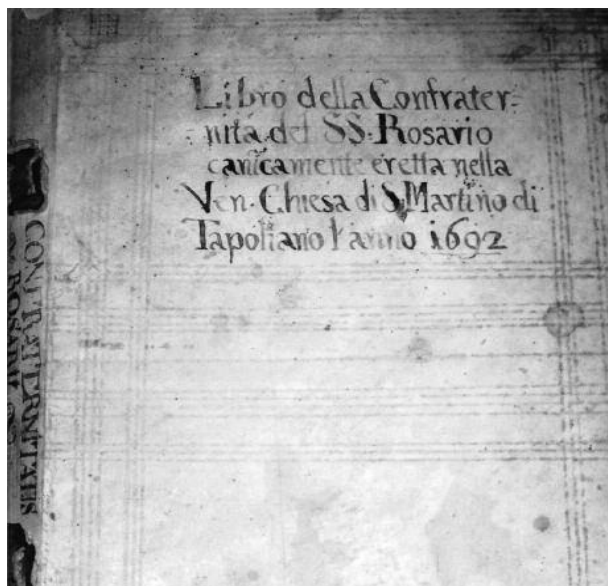 Libro della Confrater=
nità del SS. Rosario
canicamente eretta nella
Ven. Chiesa di S. Martino di
Tapoliano l'anno 1692
CONFRATERNITATIS
ROSARII